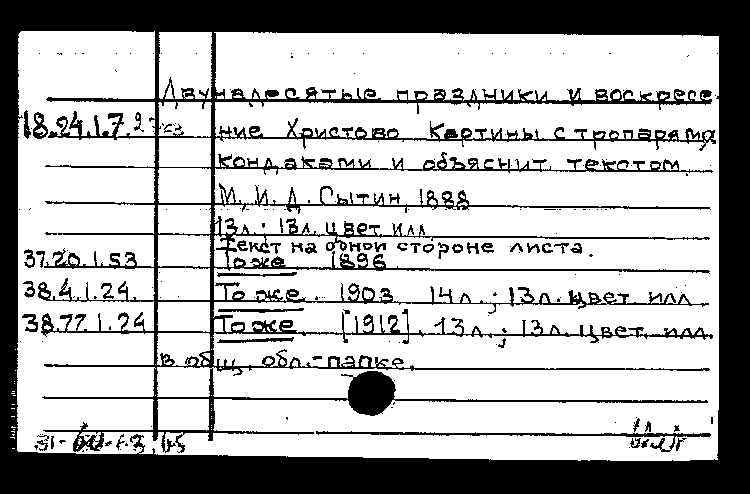 Двунадесятые праздники и воскресе-
18.24.1.7. ние Христово. Картины с тропарями,
кондаками и объяснит. текстом.
М., И. Д. Сытин, 1888
13л.; 13л. цвет. илл.
Текст на одной стороне листа.
37.20.1.53 То же 1896
38.4.1.24. То же. 1903. 14л.; 13л. цвет. илл.
38.77.1.24 То же. [1912]. 13л.; 13л. цвет. илл.
в общ. обл.-папке.